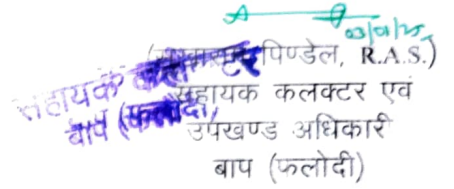 03/01/25
पिण्डेल, R.A.S.)
सहायक कलक्टर एवं
उपखण्ड अधिकारी
बाप (फलोदी)
सहायक कलक्टर
बाप (फलोदी)